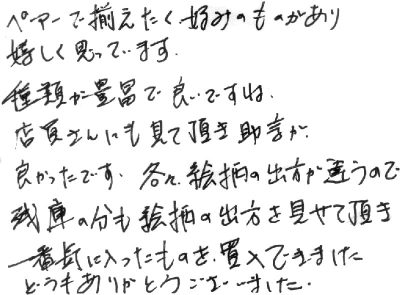 ペアーで揃えたく好みのものがあり
嬉しく思っています.
種類が豊富で良いですね.
店員さんにも見て頂き助言が.
良かったです. 各々絵柄の出方が違うので
残庫の分も絵柄の出方を見せて頂き
一番気に入ったものを.買入できました
どうもありがとうございました.